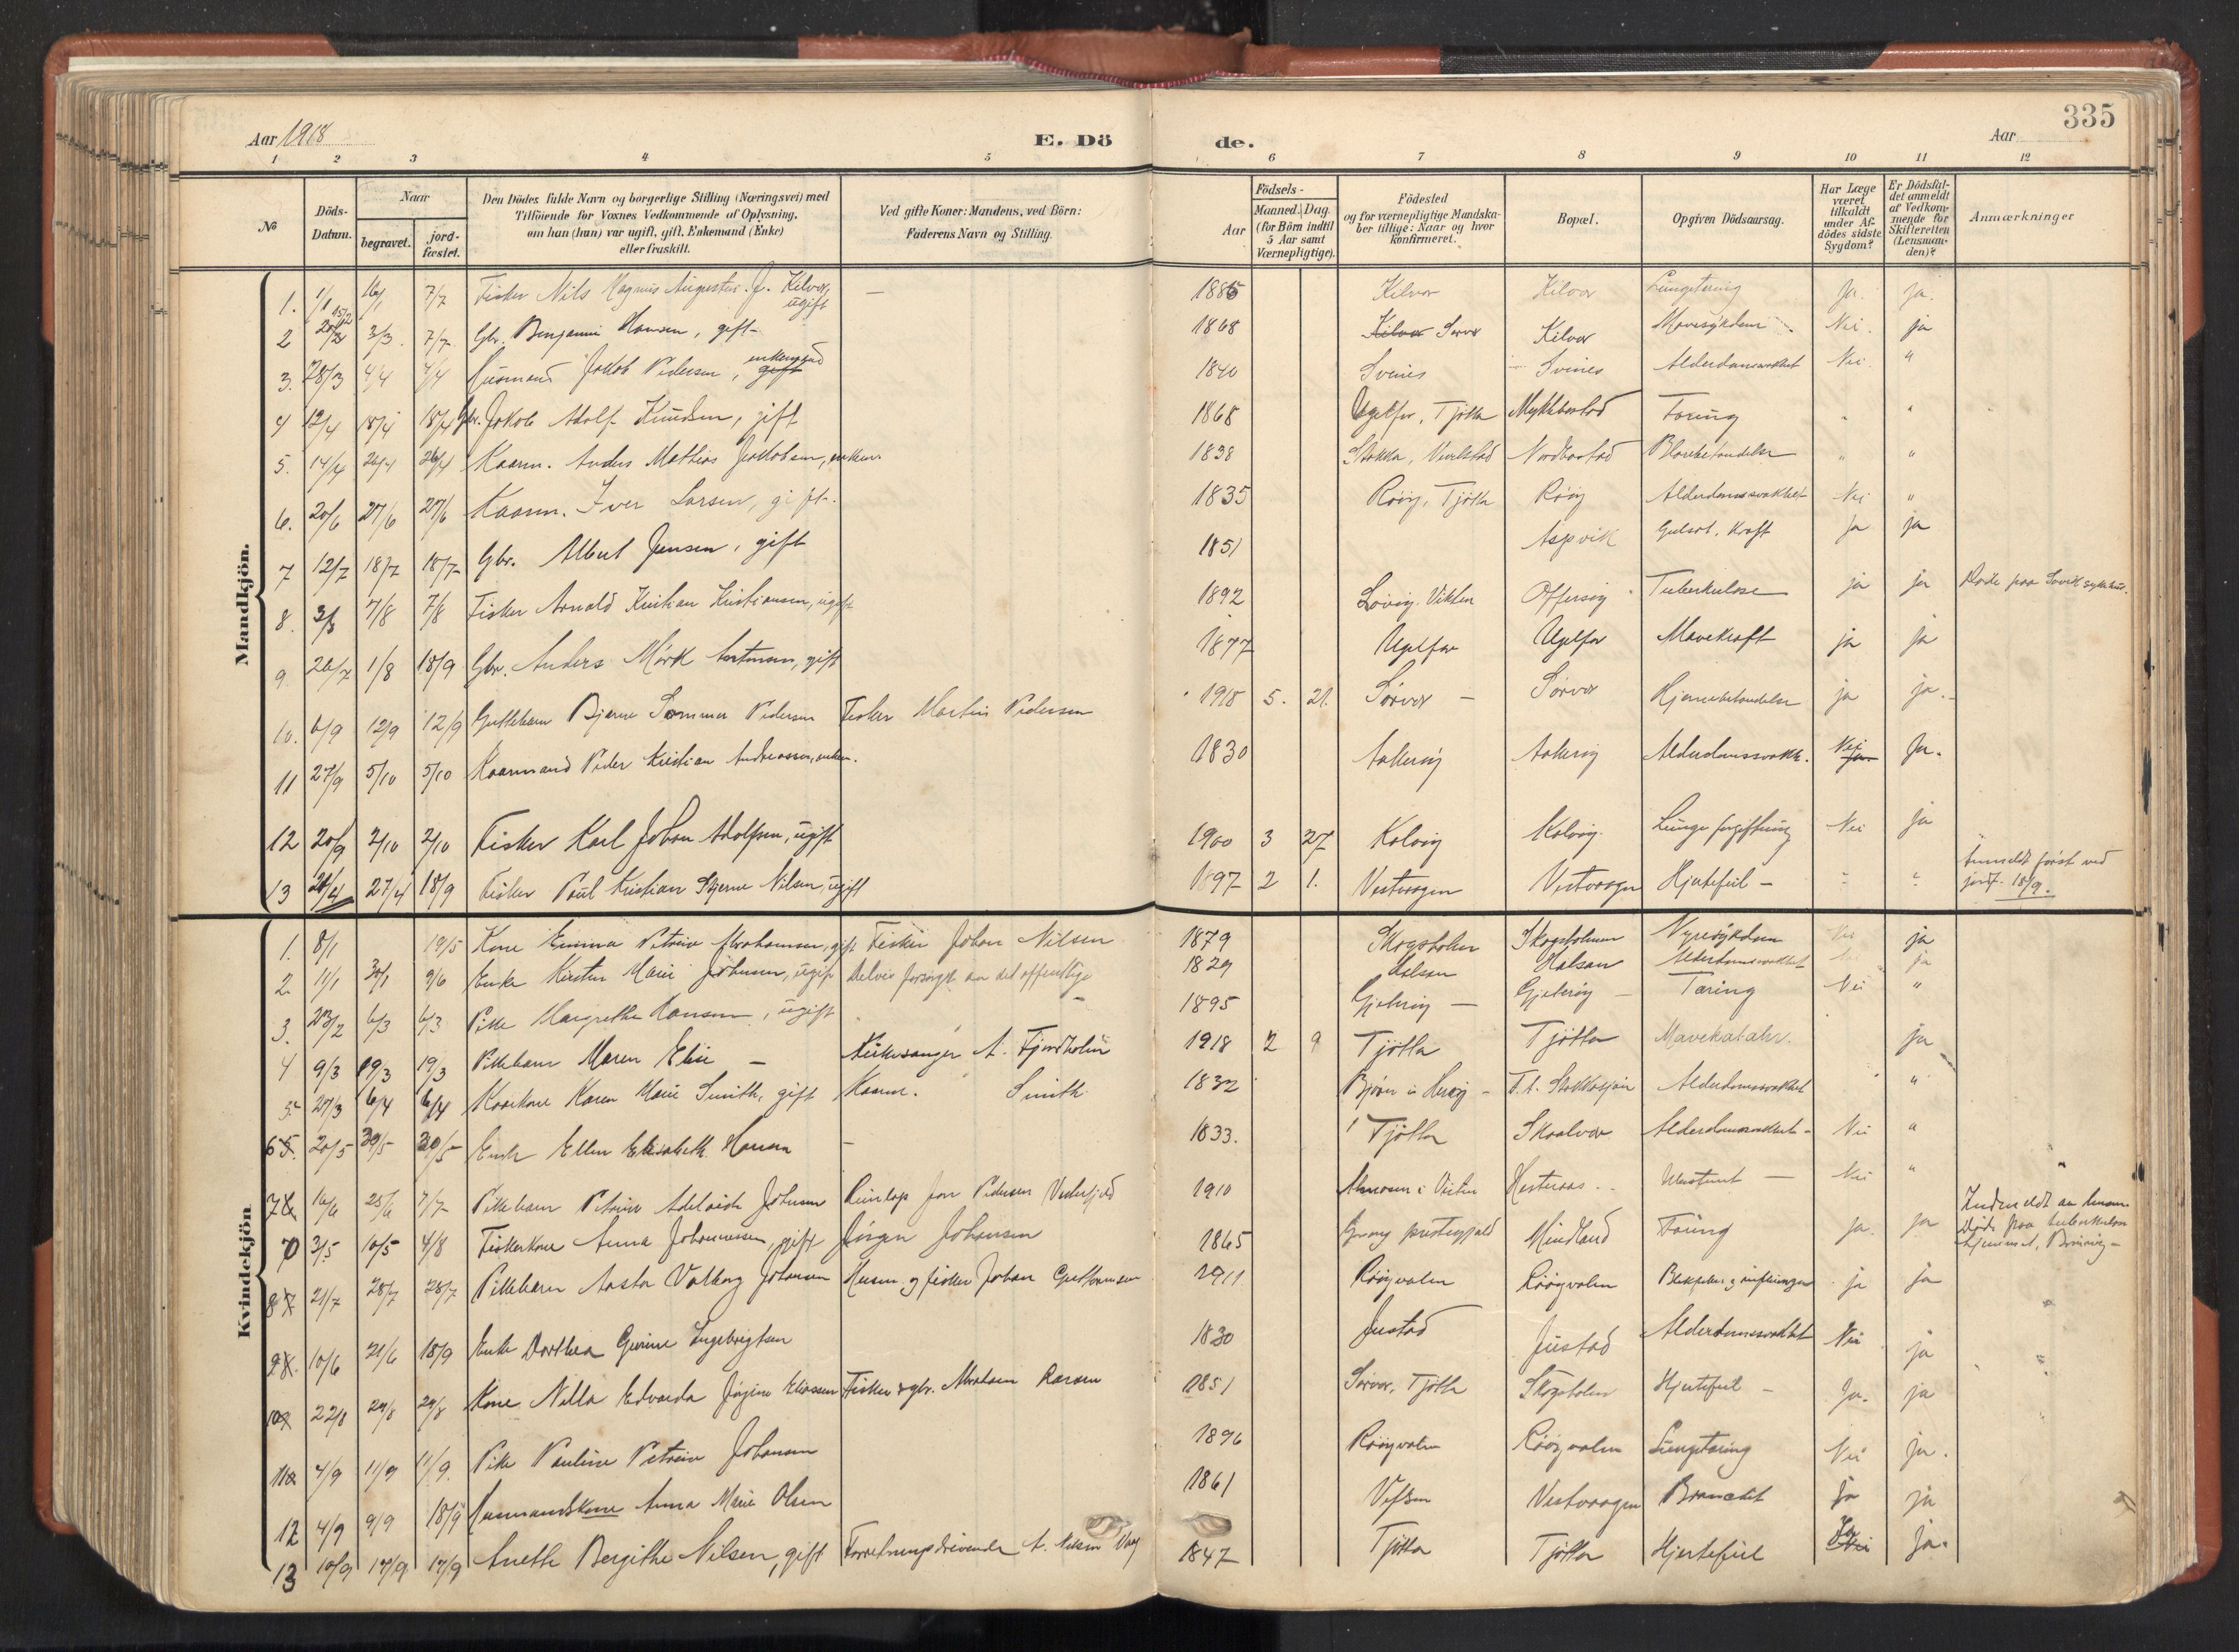 335
Aar 1918
E. Dö
de.
Aar
1 2 3 4 5 6 7 8 9 10 11 12
№
Döds-Datum.
Naar
begravet.
jord-fæstet.
Den Dödes fulde Navn og borgerlige Stilling (Næringsvei) med
Tilföiende for Voxnes Vedkommende af Oplysning,
om han (hun) var ugift, gift, Enkemand (Enke)
eller fraskilt.
Ved gifte Koner: Mandens, ved Börn:
Faderens Navn og Stilling.
Födsels-
Aar
Maaned. Dag.
(for Börn indtil
5 Aar samt
Værnepligtige).
Födested
og for værnepligtige Mandska-
ber tillige: Naar og hvor
konfirmeret.
Bopæl.
Opgiven Dödsaarsag.
Har Læge
været
tilkaldt
under Af-
dödes sidste
Sygdom?
Er Dödsfal-
det anmeldt
af Vedkom-
mende for
Skifteretten
(Lensman-
den)?
Anmærkninger
Mandkjön.
1. 1/1 16/1 7/7 Fisker Nils Magnus Augustus J. Kilvær, ugift — 1885 Kilvær Kilvær Lungetæring Ja. ja.
2 3/3 7/7 Gbr. Benjamin Hansen, gift 1868 Kilvær Sørvær Kilvær Mavesykdom Nei. ja
3. 28/3 4/4 4/4 Husmand Jakob Pedersen, gift enkemand 1840 Svines Svines Alderdomssvakhet Nei "
4 12/4 18/4 18/4 Gbr. Jakob Adolf Knudsen, gift 1868 Ugelfær, Tjøtta Mykklebostad Tæring " "
5. 14/4 26/4 26/4 Kaarm. Anders Mathias Jakobsen, enkem. 1838 Stokka, Nordbostad Blærebetændelse " "
6. 20/6 27/6 27/6 Kaarm. Iver Larsen, gift. 1835 Røøy, Tjøtta Røøy Alderdomssvakhet Nei "
7 12/7 18/7 18/7 Gbr. Albert Jensen, gift 1851 Aspvik Gulsot, Kræft Ja ja
8. 3/8 7/8 7/8 Fisker Arnold Kristian Kristiansen, ugift 1892 Offersøy Tuberkulose ja ja Døde paa Sandvik sykehus.
9. 26/7 1/8 18/9 Gbr. Anders Mørk Antonsen, gift 1877 Ugelfær Ugelfær Mavekræft ja ja
10. 6/9 12/9 12/9 Guttebarn Bjarne Sommer Pedersen Fisker Martin Pedersen 1918 5. 21. Sørvær — Sørvær Hjernebetændelse ja ja.
11 27/9 5/10 5/10 Kaarmand Peder Kristian Andreassen, enkem. 1830 Alderdomssvakh. Nei ja Ja.
12 20/9 2/10 2/10 Fisker Karl Johan Adolfsen, ugift 1900 3 27 Kalvøy Kalvøy Lunge forgiftning Nei Ja
13 27/4 18/9 Fisker Paul Kristian Stjerne Nilsen, ugift 1897 2 1. Vestvaagen Vestvaagen Hjertefeil — " " Anmeldt først ved jordf. 18/9.
Kvindekjön
1. 8/1 19/5 Kone Emma Petrine Abrahamsen, gift Fisker Johan Nilsen 1879 Skogsholm Skogsholmen Nyresykdom Nei ja
2. 11/1 30/1 9/6 Enke Kirsten Marie Johnsen, ugift delvis forsørget av det offentlige 1829 Halsan Halsan Alderdomssvakhet ja
3. 23/2 6/3 6/3 Pike Margrethe Hansen, ugift 1895 Gjeterøy — Gjeterøy — Tæring Nei "
4 9/3 19/3 19/3 Pikebarn Maren Elise — Kirkesanger A. Fjordholm 1918 2 9 Tjøtta Tjøtta Mavekatahr. ja
5. 27/3 6/4 6/4 Kaarkone Karen Marie Smith, gift Kaarm. Smith 1832 Bjørn i Herøy — Alderdomssvakhet "
6 5. 20/5 30/5 30/5 Enke Ellen Elisabeth Hansen — 1833. Tjøtta Skaalvær Alderdomssvakhet Nei "
7 6 16/6 25/6 7/7 Pikebarn Petrine Adelaide Johnsen Jon Pedersen 1910 Ukjent — Nei "
7 3/5 10/5 4/8 Fiskerkone Anna Johannessen, gift Jørgen Johansen 1865 prestegjeld Mindland Tæring Ja. ja Død paa tuberkulosehjemmet,
8 7 21/7 28/7 28/7 Pikebarn Aasta Valborg Johansen Husm. og fisker Johan 1911 Røøyvalen Røøyvalen ja ja
9 8. 10/6 21/6 18/9 Enke Dorthea Gurine Ingebrigtsen 1830 Justad Justad Alderdomssvakhet Nei ja
10 22/8 29/8 29/8 Kone Nilla Edvarda Jørgine Eliassen Fisker & gbr. Abraham Larsen 1851 Sørvær, Tjøtta Skogsholm Hjertefeil — Ja. ja
11 4/9 11/9 11/9. Pike Pauline Petrine Johansen 1896 Røøyvalen Røøyvalen Lungetæring Nei ja.
12 4/9 9/9 18/9 Husmandskone Anna Marie Olsen 1861 Vefsen Vestvaagen Brandt Ja ja
13 10/9 17/9 17/9 Anette Bergithe Nilsen, gift Forretningsdrivende A. Nilsen 1847 Tjøtta Tjøtta Hjertefeil Ja Nei ja.